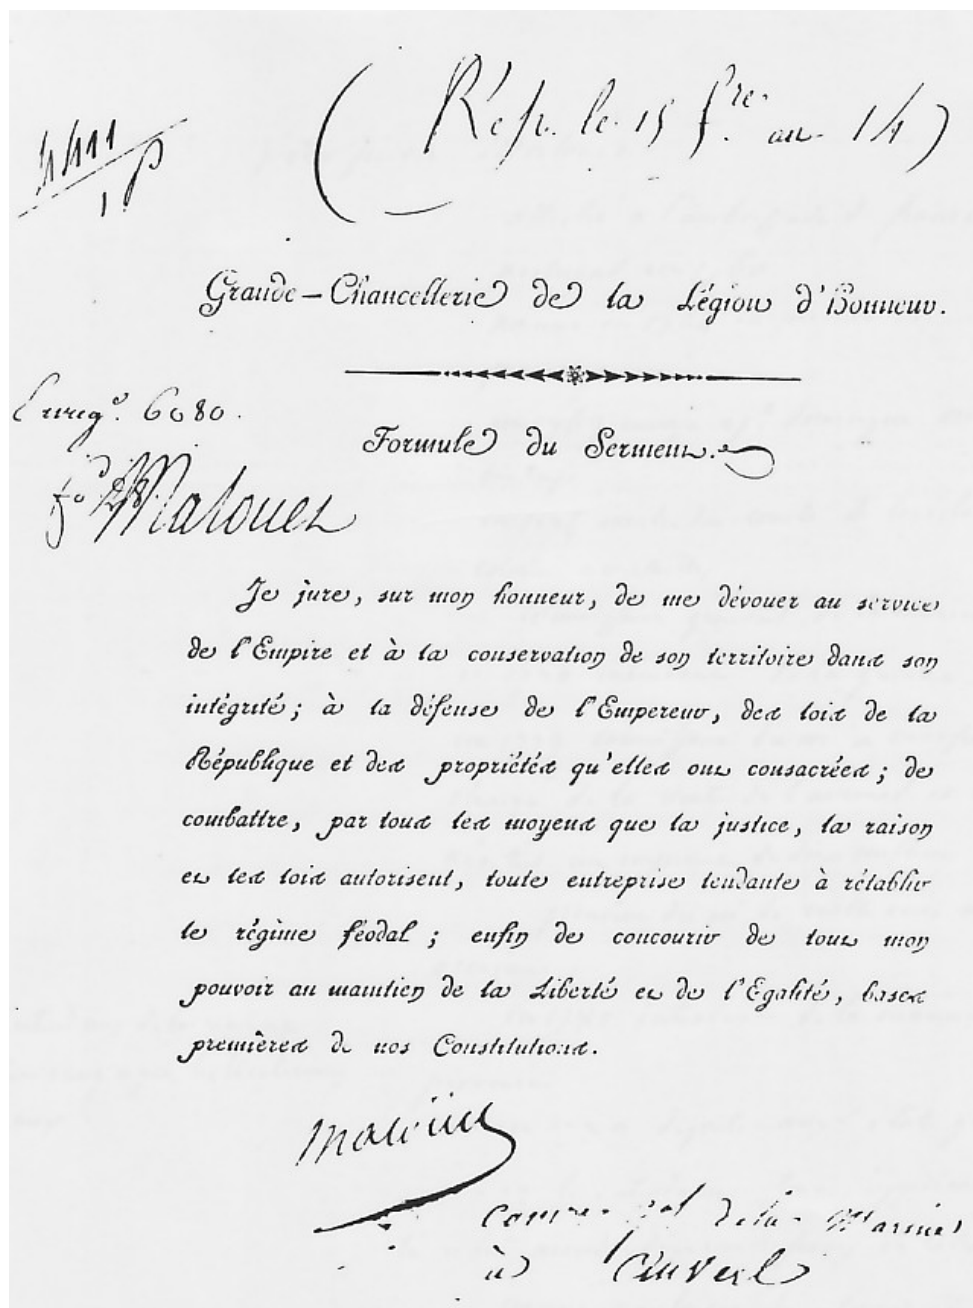 (Rép. le 15 f.re an 14)
4411
1 P
Grande-Chancellerie de la Légion d'Honneur.
Enreg.e 6080.
Formule du Serment.
fo 28. Malouet
Je jure, sur mon honneur, de me dévouer au service
de l'Empire et à la conservation de son territoire dans son
intégrité; à la défense de l'Empereur, des lois de la
République et des propriétés qu'elles ont consacrées; de
combattre, par tous les moyens que la justice, la raison
et les lois autorisent, toute entreprise tendante à rétablir
le régime féodal; enfin de concourir de tout mon
pouvoir au maintien de la Liberté et de l'Egalité, bases
premières de nos Constitutions.
Malouet
Comre. gal de la Marine
à Anvers